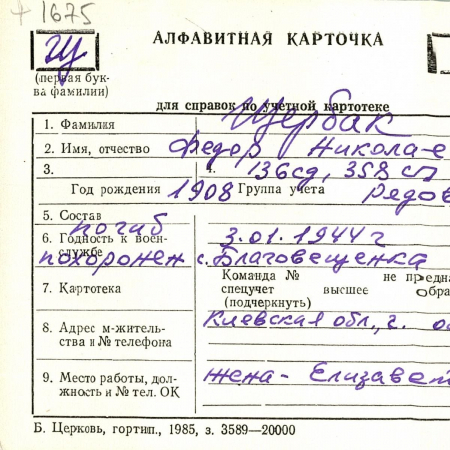 + 1675
АЛФАВИТНАЯ КАРТОЧКА
Щ
(первая бук-
ва фамилии)
для справок по учетной картотеке
1. Фамилия Щербак
2. Имя, отчество Федор Николае
3. 136сд, 358 сп
Год рождения 1908 Группа учета Рядов
5. Состав погиб
6. Годность к воен-
службе 3.01.1944г
похоронен с. Благовещенка
Команда № не предна
7. Картотека спецучет высшее обра
(подчеркнуть)
8. Адрес м-житель-
ства и № телефона Киевская обл., г.
9. Место работы, дол-
жность и № тел. ОК жена - Елизавет
Б. Церковь, гортип., 1985, з. 3589—20000